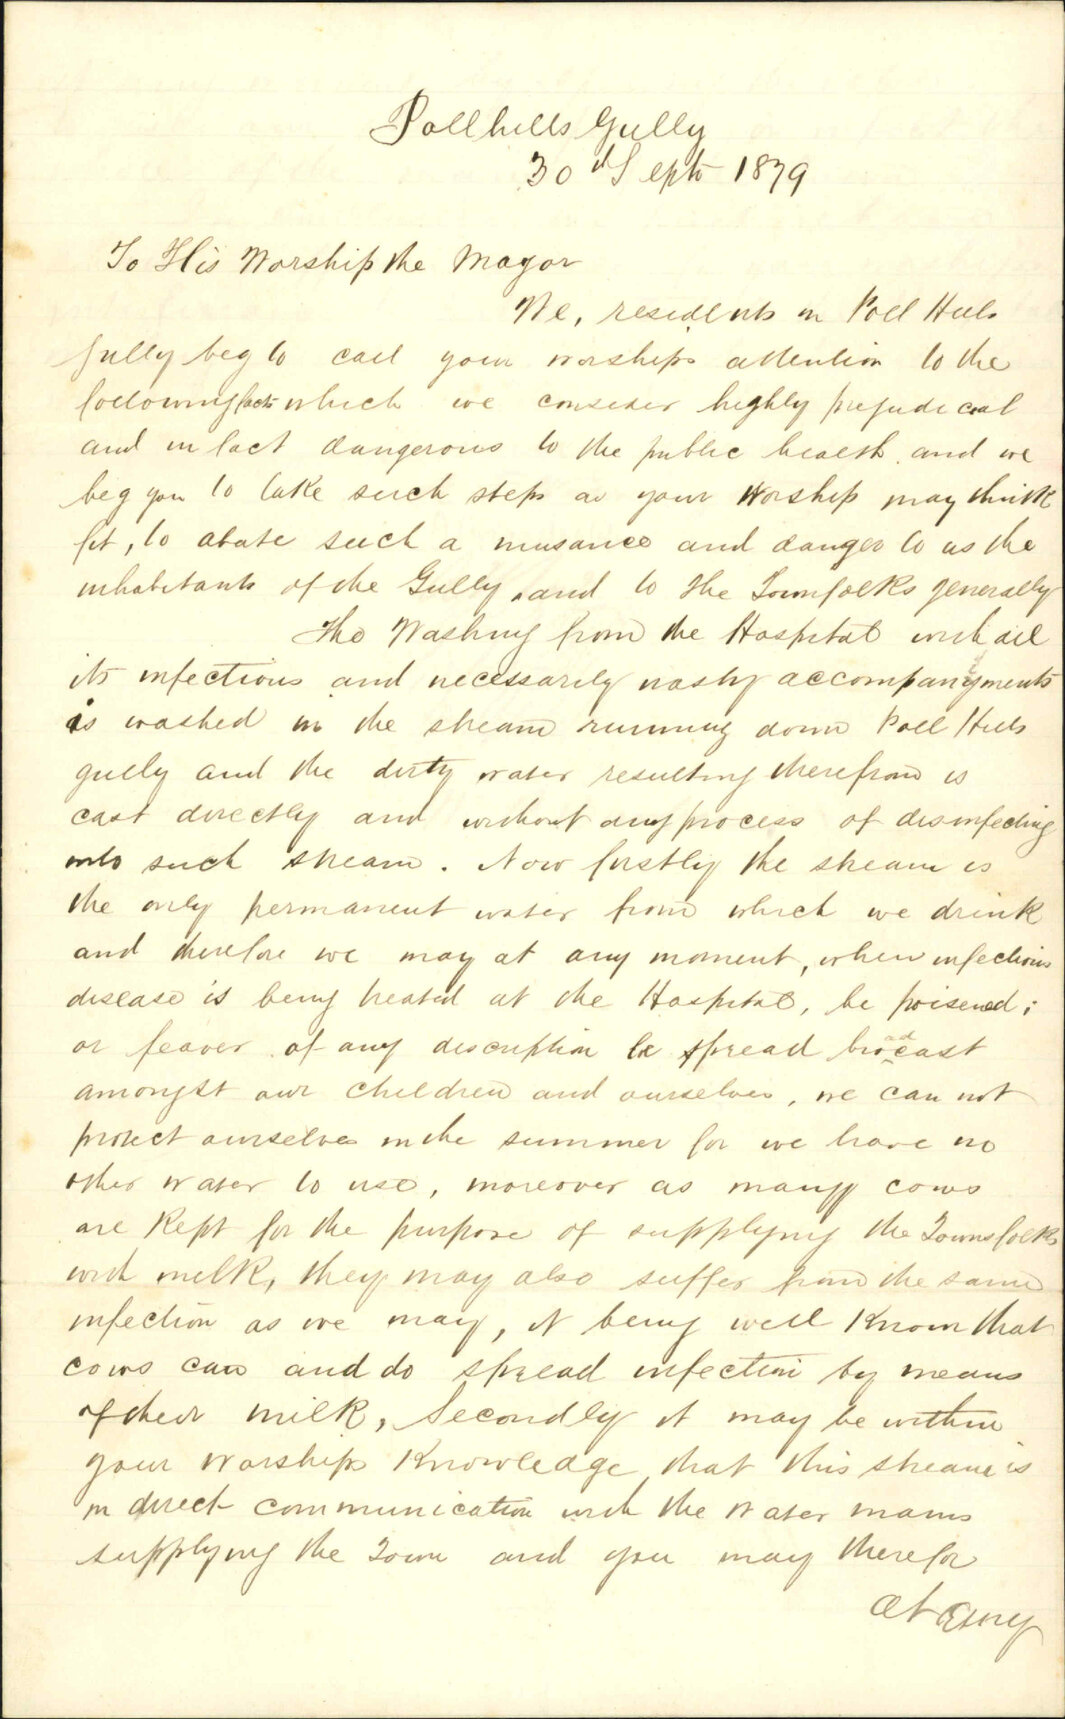 Pollhills Gully
30th Septr 1879
To His Worship the Mayor
We, residents in Poll Hills
Gully beg to call your worships attention to the
following facts which we consider highly prejudicial
and in fact dangerous to the public health and we
beg you to take such steps as your Worship may think
fit, to abate such a nusance and danger to us the
inhabitants of the Gully, and to the Townfolks generally
The Washing from the Hospital with all
its infectious and necessarily nasty accompanyments
is washed in the stream running down Poll Hills
gully and the dirty water resulting therefrom is
cast directly and without any process of disinfecting
into such stream. Now firstly the stream is
the only permanent water from which we drink
and therefore we may at any moment, when infectious
disease is being treated at the Hospital, be poisened;
or feaver of any discription be spread broadcast
amongst our children and ourselves, we can not
protect ourselves in the summer for we have no
other water to use, moreover as many cows
are kept for the purpose of supplying the Townsfolks
with milk, they may also suffer from the same
infection as we may, it being well known that
cows can and do spread infection by means
of their milk, Secondly it may be within
your Worships Knowledge that this stream is
in direct communication with the Water mains
supplying the Town and you may therefor
at any